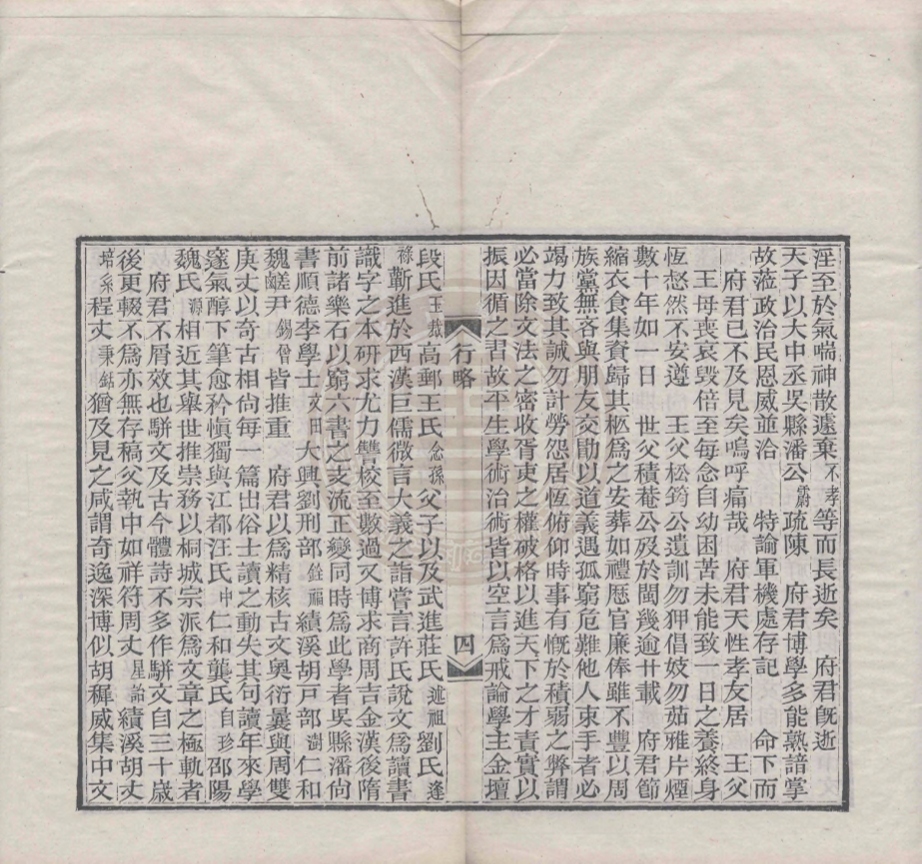 淫至於氣喘神散遽棄不孝等而長逝矣　府君既逝
天子以大中丞吳縣潘公霨疏陳　府君博學多能熟諳掌
故蒞政治民恩威並洽　特諭軍機處存記　命下而
府君已不及見矣嗚呼痛哉　府君天性孝友居　王父
王母喪哀毀倍至每念自幼困苦未能致一日之養終身
恆愸然不安遵　王父松筠公遺訓勿狎倡妓勿茹雅片煙
數十年如一日　世父積菴公歿於閩幾逾廿載　府君節
縮衣食集資歸其柩爲之安葬如禮歷官廉俸雖不豐以周
族黨無吝與朋友交勖以道義遇孤窮危難他人束手者必
竭力致其誠勿計勞怨居恆俯仰時事有慨於積弱之弊謂
必當除文法之密收胥吏之權破格以進天下之才責實以
振因循之習故平生學術治術皆以空言爲戒論學主金壇
行略　四
段氏玉裁高郵王氏念孫父子以及武進莊氏述祖劉氏逢
祿蘄進於西漢巨儒微言大義之詣嘗言許氏說文爲讀書
識字之本研求尤力讐校至數過又博求商周吉金漢後隋
前諸樂石以窮六書之支流正變同時爲此學者吳縣潘尙
書順德李學士文田大興劉刑部銓福績溪胡戶部澍仁和
魏鹺尹錫曾皆推重　府君以爲精核古文奧衍襄與周雙
庚丈以奇古相尙每一篇出俗士讀之動失其句讀年來學
邃氣醇下筆愈矜愼獨與江都汪氏中仁和龔氏自珍邵陽
魏氏源相近其舉世推崇務以桐城宗派爲文章之極軌者
府君不屑效也駢文及古今體詩不多作駢文自三十歲
後更輟不爲亦無存稿父執中如祥符周丈星詒績溪胡丈
培系程丈秉銛猶及見之咸謂奇逸深博似胡稺威集中文